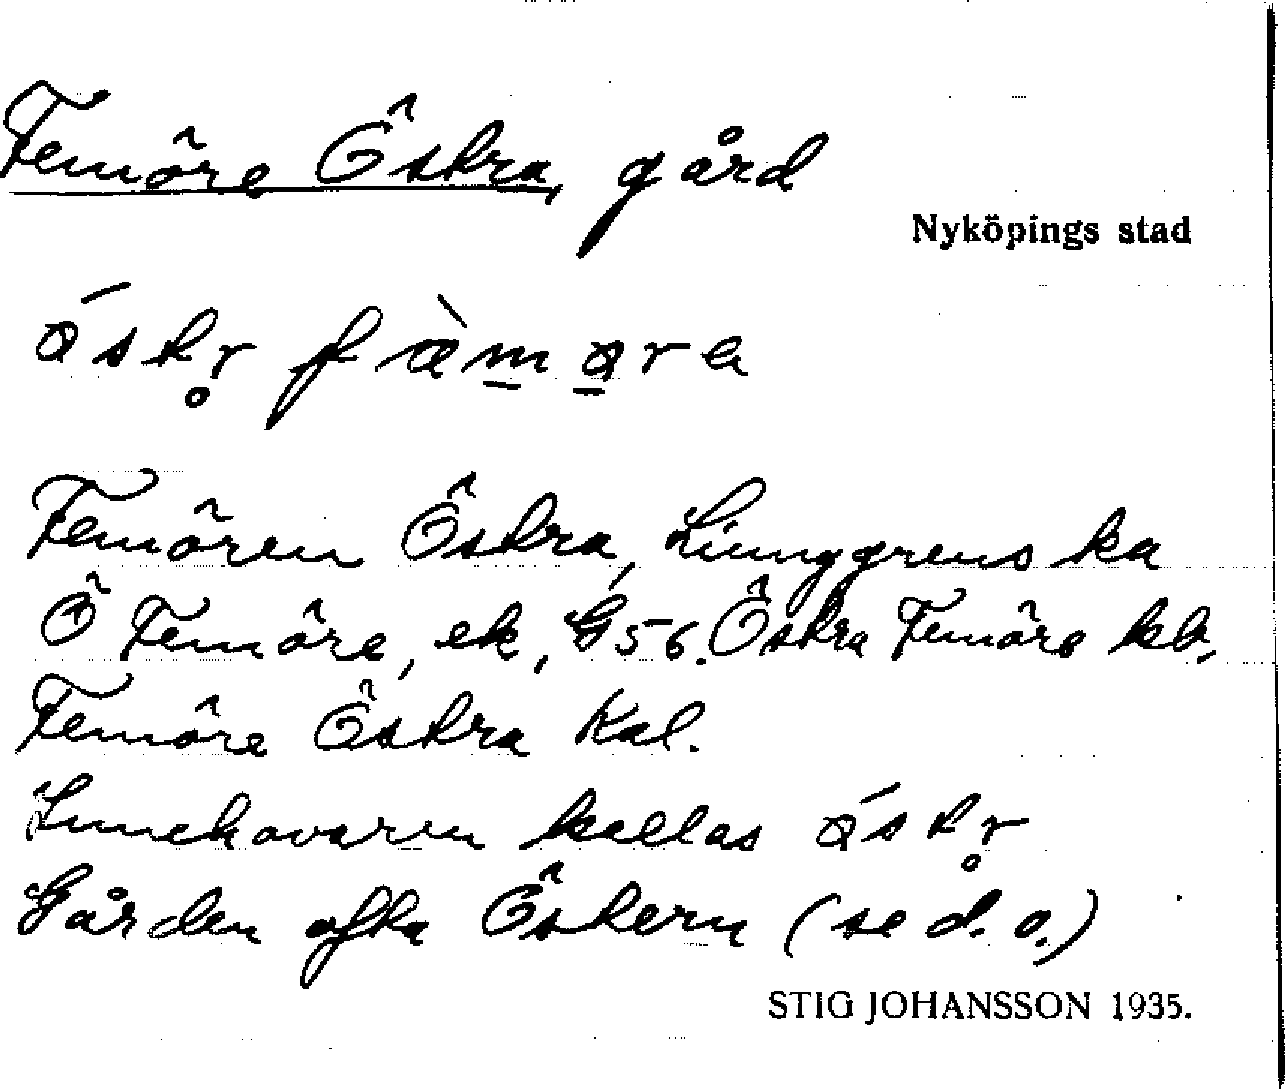 Femöre Östra, gård
Nyköpings stad
ǿstr̥ fæ̀mørɐ
Femören Östra, Liunggrens ka
Ö Femöre, ek, G56. Östra Femöre kb,
Femöre Östra Kal.
kallas ǿstr̥
Gården ofta Östern (se d. o.)
STIG JOHANSSON 1935.